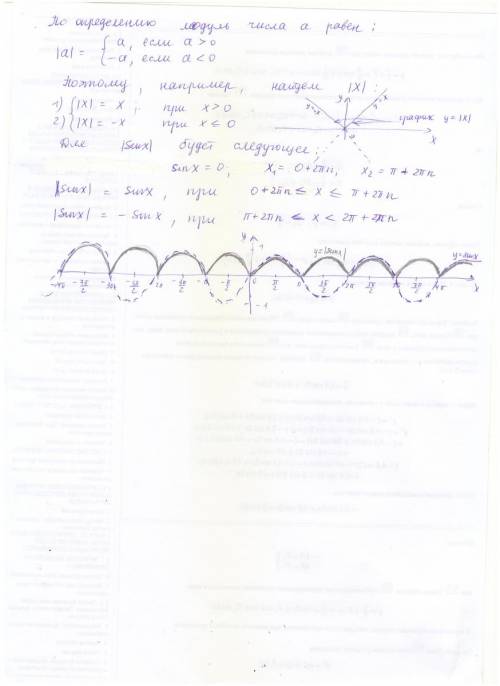 По определению модуль числа a равен:
|a| = { a, если a > 0
-a, если a < 0
Поэтому, например, найдем |X|:
1) { |X| = X ; при x > 0
2) { |X| = -X при x ≤ 0
y=-x y y=x график y=|X|
0 X
Для |sinx| будет следующее:
sinx = 0; X₁ = 0+2πn; X₂ = π+2πn
|sinx| = sinx, при 0+2πn ≤ x ≤ π+2πn
|sinx| = -sinx, при π+2πn < x < 2π+2πn
y 1 y=|sinx| y=sinx
-4π -7π/2 -3π -5π/2 -2π -3π/2 -π -π/2 0 π/2 π 3π/2 2π 5π/2 3π 7π/2 4π x
-1